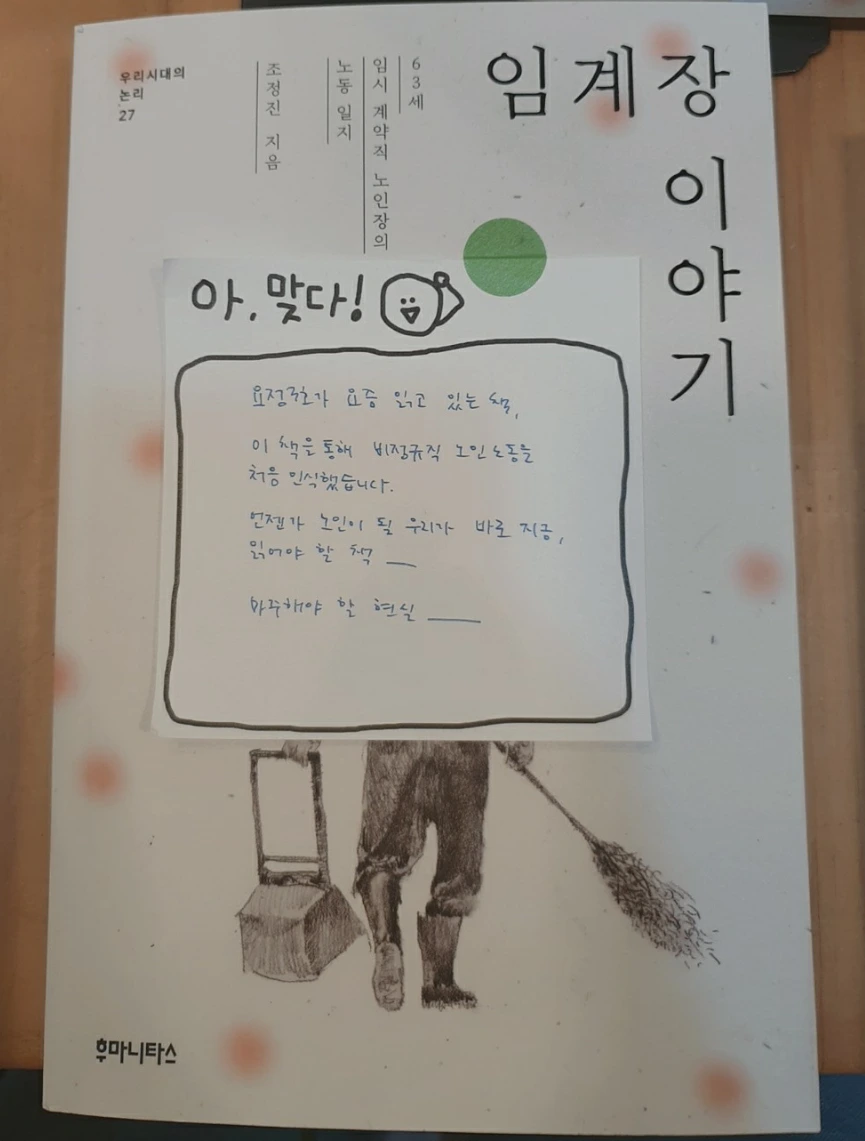 우리시대의
논리
27
임계장
이야기
63세
임시 계약직 노인장의
노동 일지
조정진 지음
아, 맞다!
요정구호가 요즘 읽고 있는 책,
이 책을 통해 비정규직 노인노동을
처음 인식했습니다.
언젠가 노인이 될 우리가 바로 지금,
읽어야 할 책 __
마주해야 할 현실 ___
후마니타스